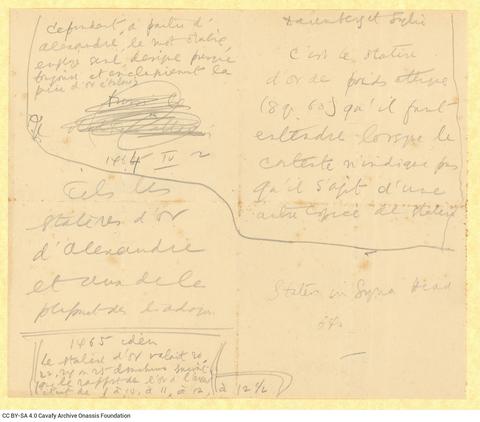 Cependant, à partir d'
Alexandre, le mot statère
employé seul, désigne presque
toujours et exclusivement la
pièce d'or
1464 IV 2
Tels les
statères d'or
d'Alexandre
et ceux de la
plupart des diadoques
1465 idem
Le statère d'or valait 20,
22, 24 ou 25 drachmes suivant
que le rapport de l'or à l'argent
était de à 10, à 11, à 12, à 12 1/2
Daremberg et Saglio
C'est le statère
d'or de poids attique
(8 gr. 60) qu'il faut
entendre lorsque le
contexte n'indique pas
qu'il s'agit d'une
autre espèce de statère
Stater in Head
CC BY-SA 4.0 Cavafy Archive Onassis Foundation